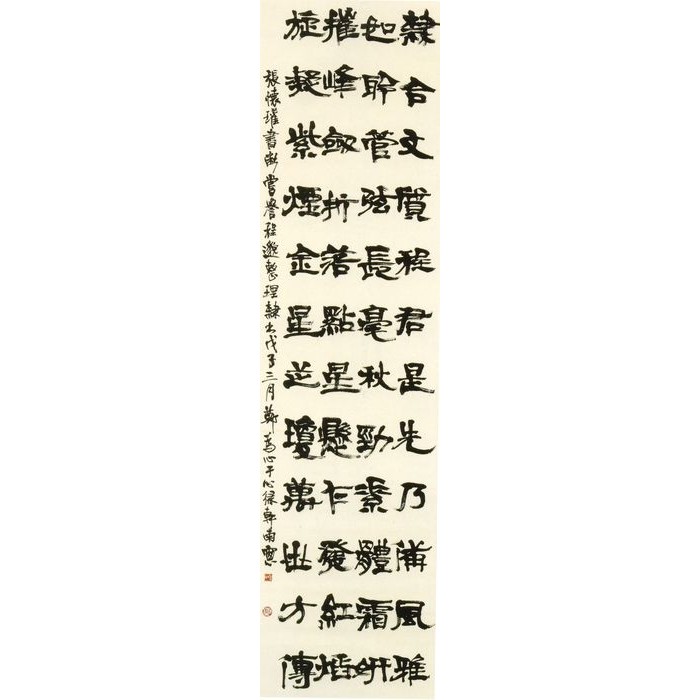 隸合文質程君是先乃備風雅
如聆管弦長毫秋勁素體霜妍
摧峰劍折若點星懸乍發紅焰
旋凝紫煙金星芝瓊萬世方傳
張懷瓘書斷嘗譽程邈整理隸書戊子三月鄭為心于心軒南